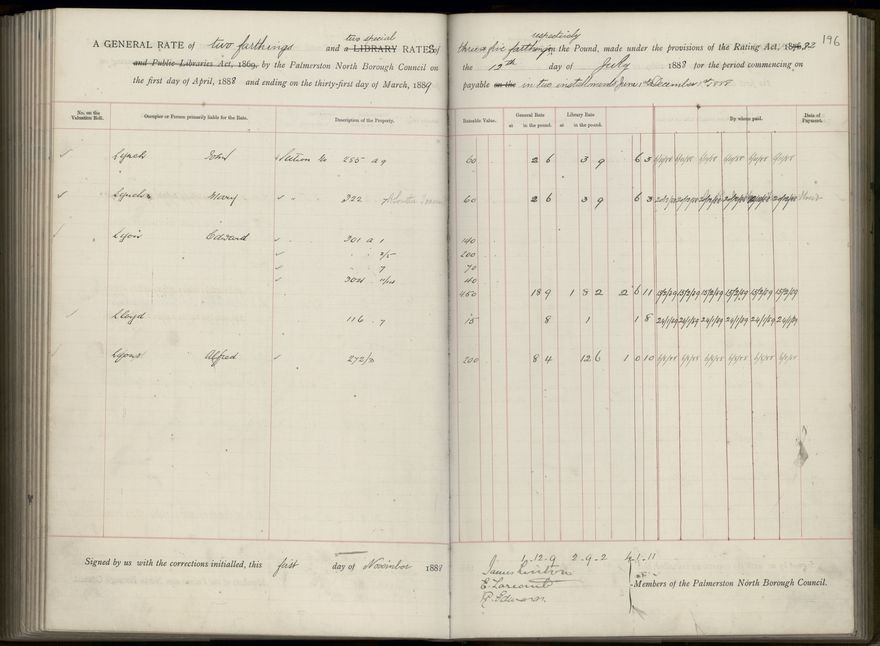 A GENERAL RATE of two farthings and a LIBRARY RATES of
two special
and Public Libraries Act, 1869, by the Palmerston North Borough Council on
the first day of April, 1888 and ending on the thirty-first day of March, 1889
No. on the Valuation Roll. Occupier or Person primarily liable for the Rate. Description of the Property.
Lynch John Section No 285 a 9
Lynch Mary 322 7
Lyon Edward 301 a 1
2/5
7
304
Lloyd 116 7
Lyons Alfred 272/3
Signed by us with the corrections initialled, this first day of November 1888
respectively
196
three & five farthings in the Pound, made under the provisions of the Rating Act, 1876, 82
the 12th day of July 1888 for the period commencing on
payable on the in two instalments June 1st December 1st 1888
Rateable Value. General Rate at in the pound. Library Rate at in the pound. By whom paid. Date of Payment.
60 2 6 3 9 6 3
60 2 6 3 9 6 3
140
200
70
40
450 18 9 1 8 2 2 6 11 15/2/89 15/2/89 15/2/89 15/2/89 15/2/89 15/2/89
15 8 1 1 8 24/1/89 24/1/89 24/1/89 24/1/89 24/1/89 24/1/89
200 8 4 12 6 1 0 10
1-12-9 2-9-2 4-1-11
James Linton
E. Larcomb
Members of the Palmerston North Borough Council.